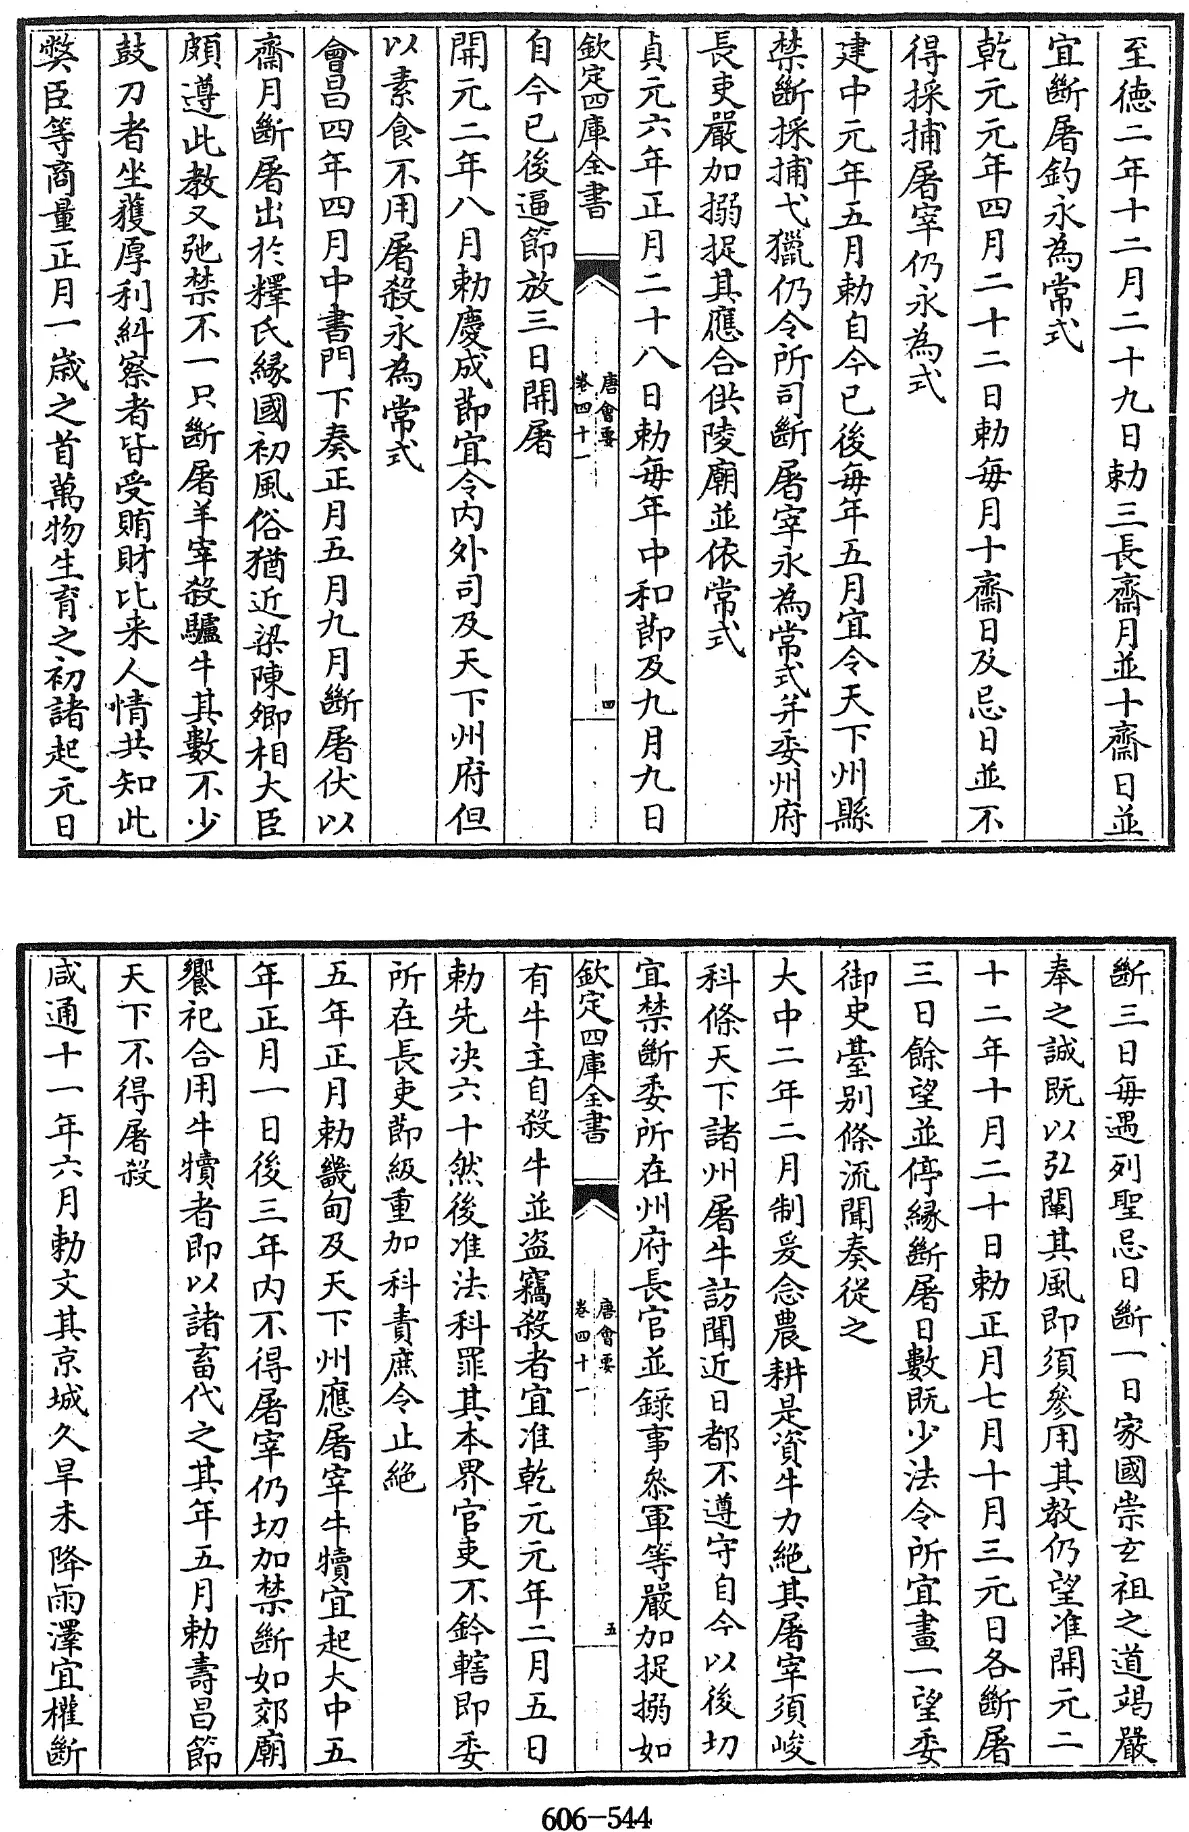 至德二年十二月二十九日勅三長齋月並十齋日並
宜斷屠釣永為常式
乾元元年四月二十二日勅每月十齋日及忌日並不
得採捕屠宰仍永為式
建中元年五月勅自今已後每年五月宜令天下州縣
禁斷採捕弋獵仍令所司斷屠宰永為常式并委州府
長吏嚴加搦捉其應合供陵廟並依常式
貞元六年正月二十八日勅每年中和節及九月九日
欽定四庫全書
唐會要
卷四十一
四
自今已後逼節放三日開屠
開元二年八月勅慶成節宜令內外司及天下州府但
以素食不用屠殺永為常式
會昌四年四月中書門下奏正月五月九月斷屠伏以
齋月斷屠出於釋氏緣國初風俗猶近梁陳卿相大臣
頗遵此教又弛禁不一只斷屠羊宰殺驢牛其數不少
鼓刀者坐獲厚利糾察者皆受賄財比来人情共知此
獘臣等商量正月一嵗之首萬物生育之初諸起元日
斷三日每遇列聖忌日斷一日家國崇玄祖之道竭嚴
奉之誠既以弘闡其風即須參用其教仍望准開元二
十二年十月二十日勅正月七月十月三元日各斷屠
三日餘望並停緣斷屠日數既少法令所宜畫一望委
御史臺別條流聞奏從之
大中二年二月制爰念農耕是資牛力絕其屠宰須峻
科條天下諸州屠牛訪聞近日都不遵守自今以後切
宜禁斷委所在州府長官並錄事叅軍等嚴加捉搦如
欽定四庫全書
唐會要
卷四十一
五
有牛主自殺牛並盜竊殺者宜准乾元元年二月五日
勅先決六十然後准法科罪其本界官吏不鈐轄即委
所在長吏節級重加科責庶令止絕
五年正月勅畿甸及天下州應屠宰牛犢宜起大中五
年正月一日後三年內不得屠宰仍切加禁斷如郊廟
饗祀合用牛犢者即以諸畜代之其年五月勅壽昌節
天下不得屠殺
咸通十一年六月勅文其京城久旱未降雨澤宜權斷
606-544